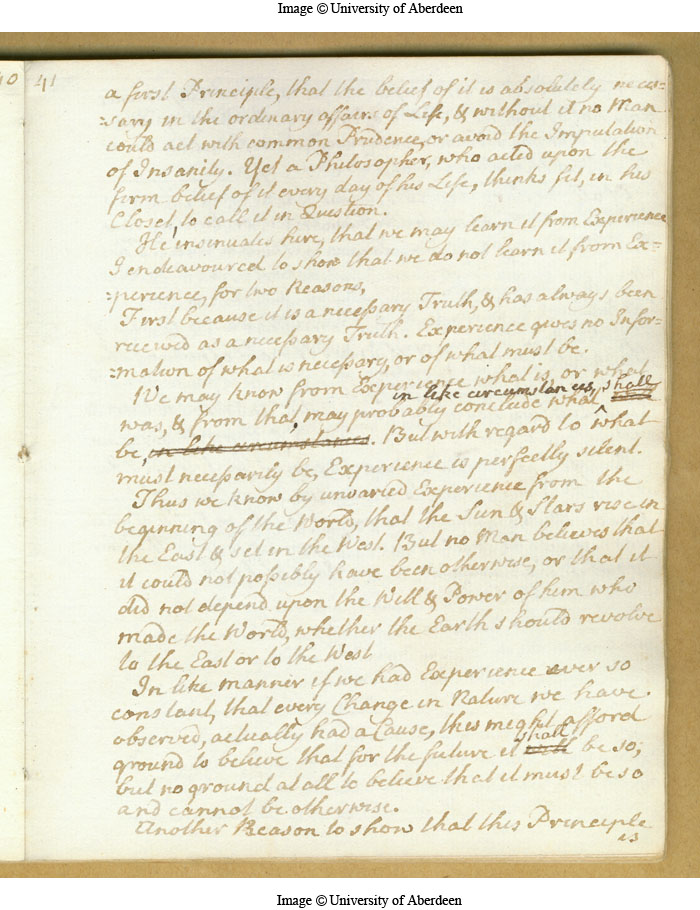 Image © University of Aberdeen
41
a first Principle, that the belief of it is absolutely neces=
=sary in the ordinary affairs of Life, & without it no Man
could act with common Prudence, or avoid the Imputation
of Insanity. Yet a Philosopher, who acted upon the
firm belief of it every day of his Life, thinks fit, in his
Closet, to call it in Question.
He insinuates here, that we may learn it from Experience
I endeavoured to show that we do not learn it from Ex=
=perience, for two Reasons,
First because it is a necessary Truth, & has always been
received as a necessary Truth. Experience gives no Infor=
=mation of what is necessary, or of what must be.
We may know from Experience what is, or what
in like circumstances, shall
was, & from that, may probably conclude what
be, in like circumstances. But with regard to what
must necessarily be, Experience is perfectly silent.
Thus we know by unvaried Experience from the
beginning of the World, that the Sun & Stars rise in
the East & set in the West. But no Man believes that
it could not possibly have been otherwise, or that it
did not depend upon the Will & Power of him who
made the World, whether the Earth should revolve
to the East or to the West
In like manner if we had Experience ever so
constant, that every Change in Nature we have
observed, actually had a Cause, this might afford
shall
ground to believe that for the future it will be so;
but no ground at all to believe that it must be so
and cannot be otherwise.
Another Reason to show that this Principle
is
Image © University of Aberdeen